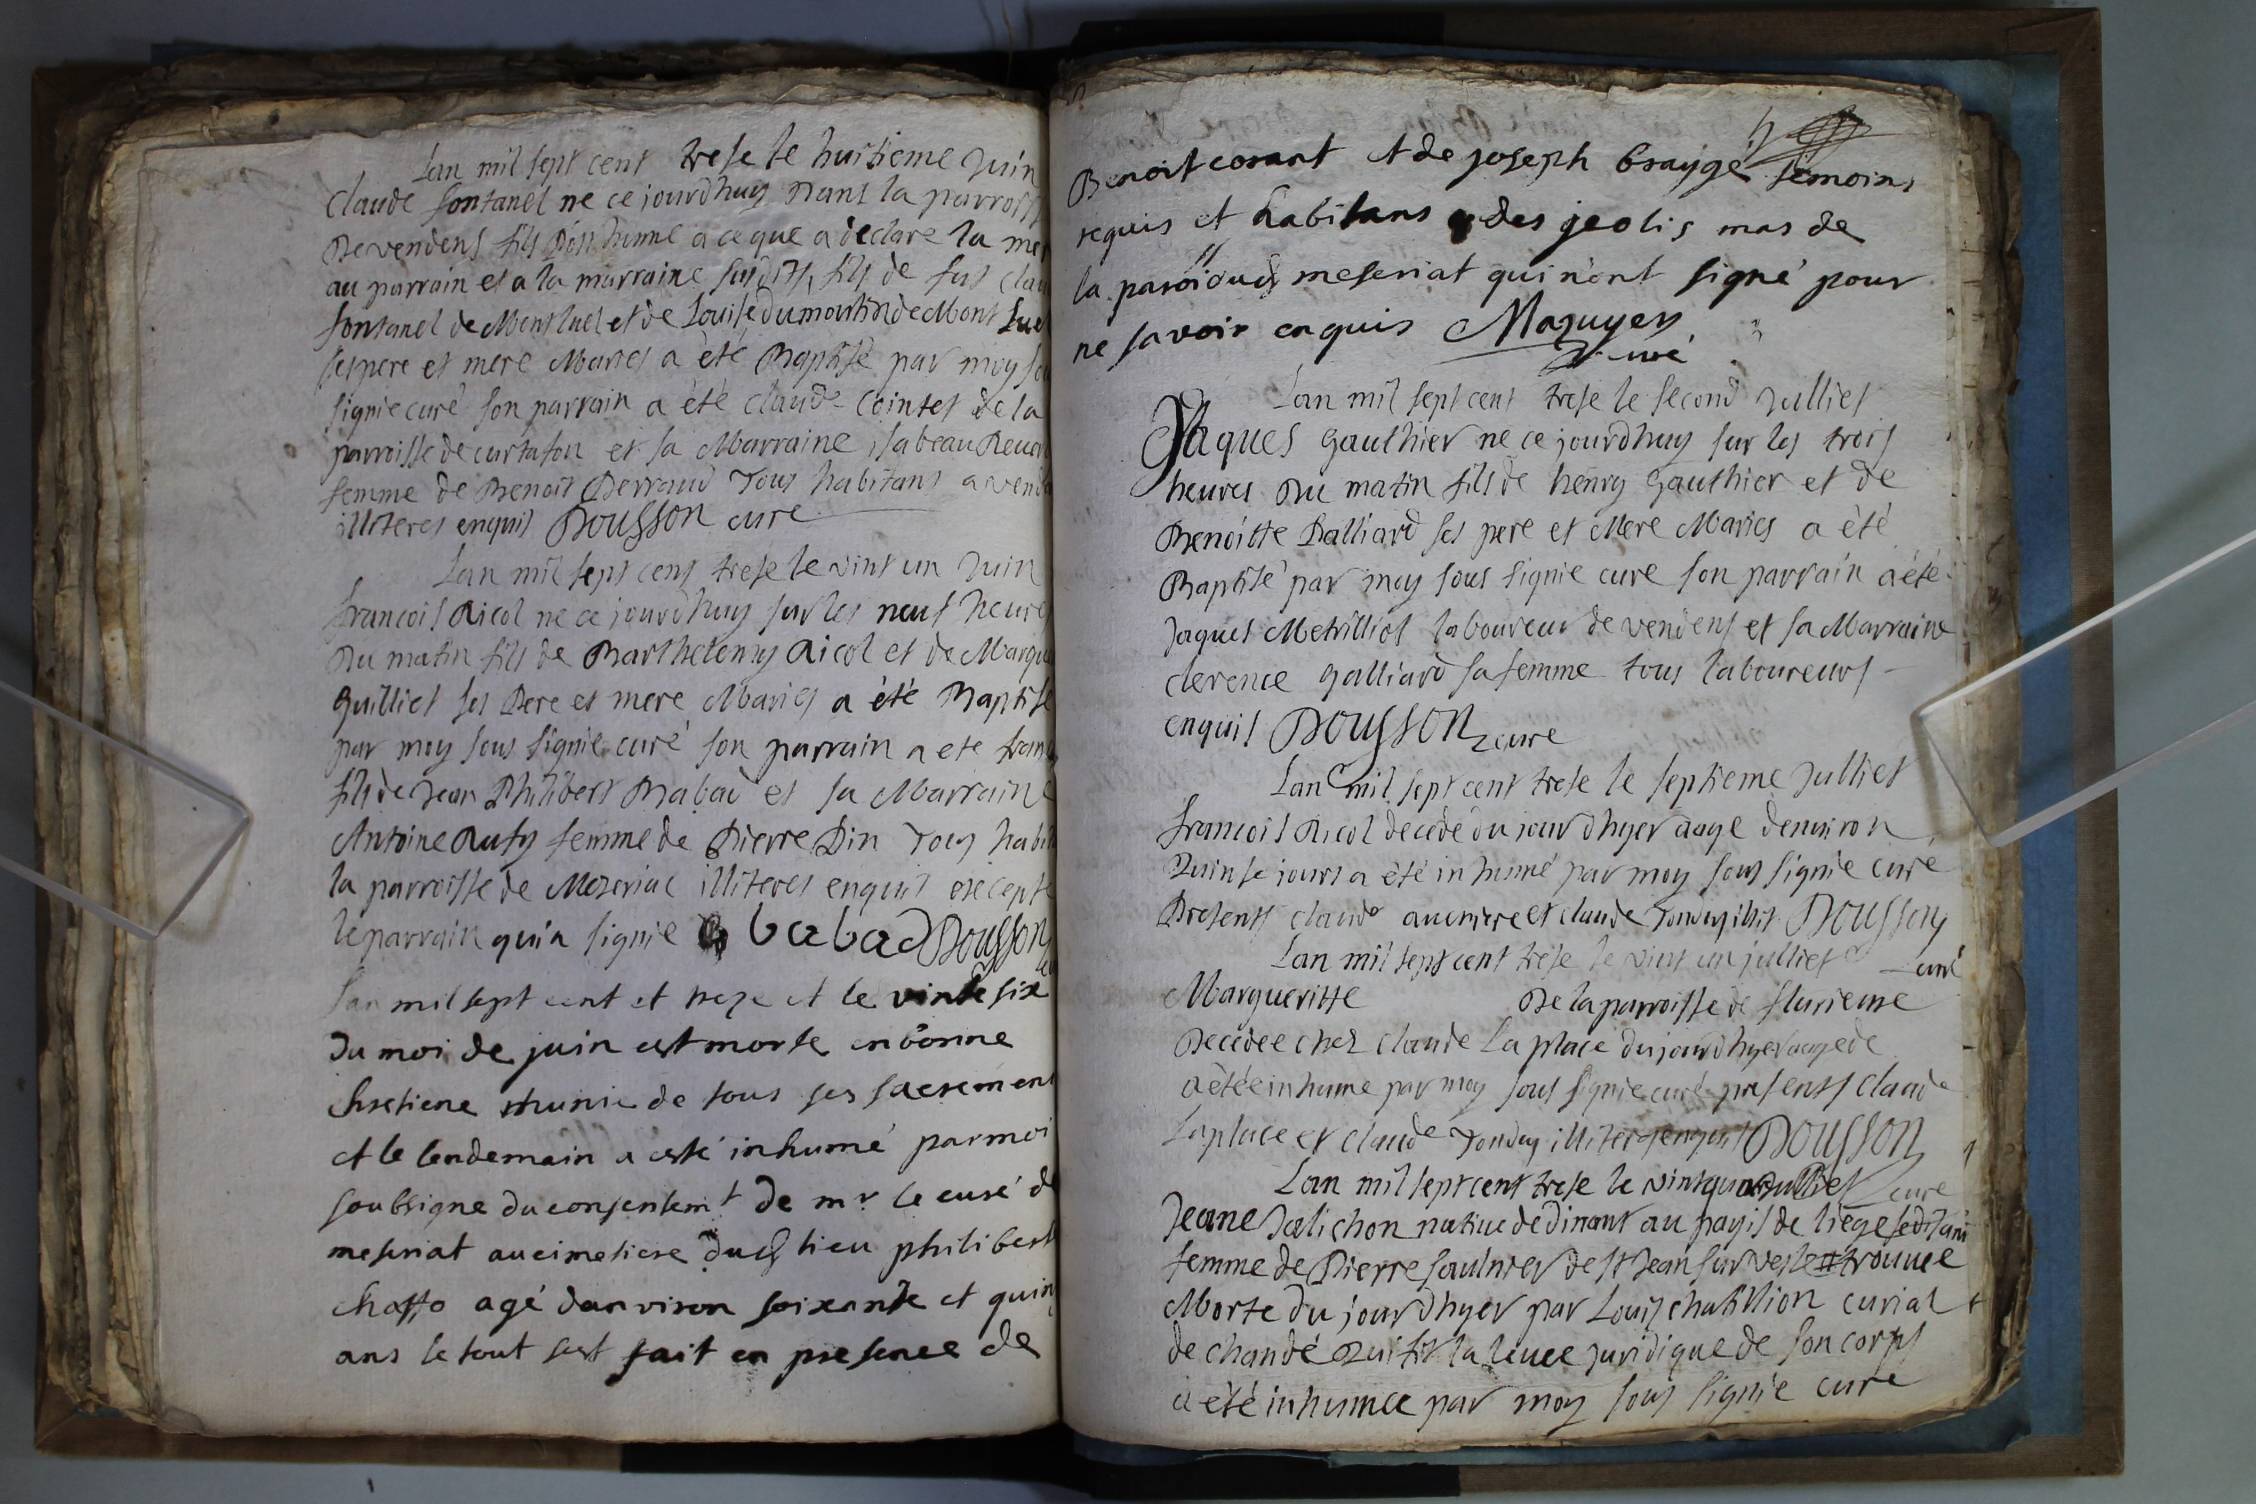 Lan mil sept cent trese le huitieme Juin
Claude fontanel ne ce jourdhuy Dans la parroiss
De vendens fils Posthume a ce que a declare la mer
au parrain et a la marraine susdits, fils de fus Clau
fontanel de Montluel et de Louise Dumoulin de Mont luel
ses pere et mere Maries a été Baptisé par moy so
signie curé son parrain a été claude Cointet de la
parroisse de curtafon et sa Marraine isabeau
femme de Benoit Perraud Tous habitans a vend
illiteres enquis DOUSSON cure
Lan mil sept cent trese le vint un Juin
francois Ricol ne ce jourdhuy sur les neuf heures
Du matin fils de Barthelemy Ricol et de Margue
Guilliet ses Pere et mere Maries a été Baptise
par moy sous signie curé son parrain a ete fran
fils de Jean Philibert Babad et sa Marraine
Antoine Rufy femme de Pierre Pin Tous habi
la parroisse de Mezeriac illiteres enquis excepte
le parrain qui a signie babad Dousson
Lan mil sept cent et treze et le vinte six
du moi de juin est morte en bonne
chretiene munie de tous ses sacrement
et le lendemain a esté inhumé par moi
soubsigne du consentemt de mr le curé de
meseriat au cimetiere dud lieu philibert
chaffo agé danviron soixante et quin
ans le tout sest fait en presence de
Benoit corant et de joseph brayge temoins
requis et habitans des jeolis mas de
la paroi dud meseriat qui n'ont signé pour
ne savoir enquis Mazuyer
curé
Lan mil sept cent trese le second Julliet
Jaques Gauthier ne ce jourdhuy sur les trois
heures Du matin fils de henry Gauthier et de
Benoitte Galliard ses pere et Mere Maries a été
Baptisé par moy sous signie cure son parrain a été
Jaques Metrilliot laboureur de vendens et sa Marraine
clerence Galliard sa femme tous laboureurs
enquis DOUSSON cure
Lan mil sept cent trese le septieme Julliet
francois Ricol decede du jour dhyer aagé denviron
Quinse jours a été inhumé par moy sous signie curé
Presents claude et claude Tondu DOUSSON
curé
Lan mil sept cent trese le vint un julliet
Margueritte De la parroisse de flurieuse
Decedee chez claude La place du jour dhyer aagede
a étée inhume par moy sous signie curé presents claude
Laplace et claude Tonduz illiteres enquis DOUSSON
cure
Lan mil sept cent trese le vint quatre Julliet
Jeane Jalichon native de dinant au payis de liege se disant
femme de Pierre saulnier de st Jean sur vesle trouvee
Morte du jour dhyer par Louis chatillion curial
de chandé Qui fit la levee juridique de son corps
a été inhumee par moy sous signie cure